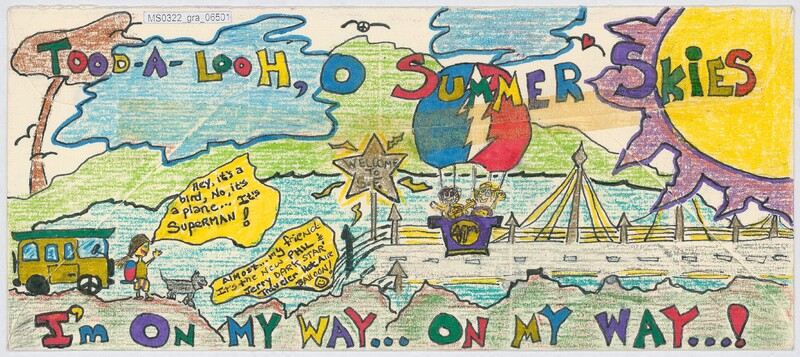 MS0322_gra_06501
TOOD-A-LOOH, O SUMMER SKIES
WELCOME
TO
Hey, it's a
bird, No, it's
a plane... It's
SUPERMAN!
Almost... my friends
It's the NEW Paul &
Jerry DARK STAR
Hot Air
BALLOON!
I'm ON MY WAY... ON MY WAY...!